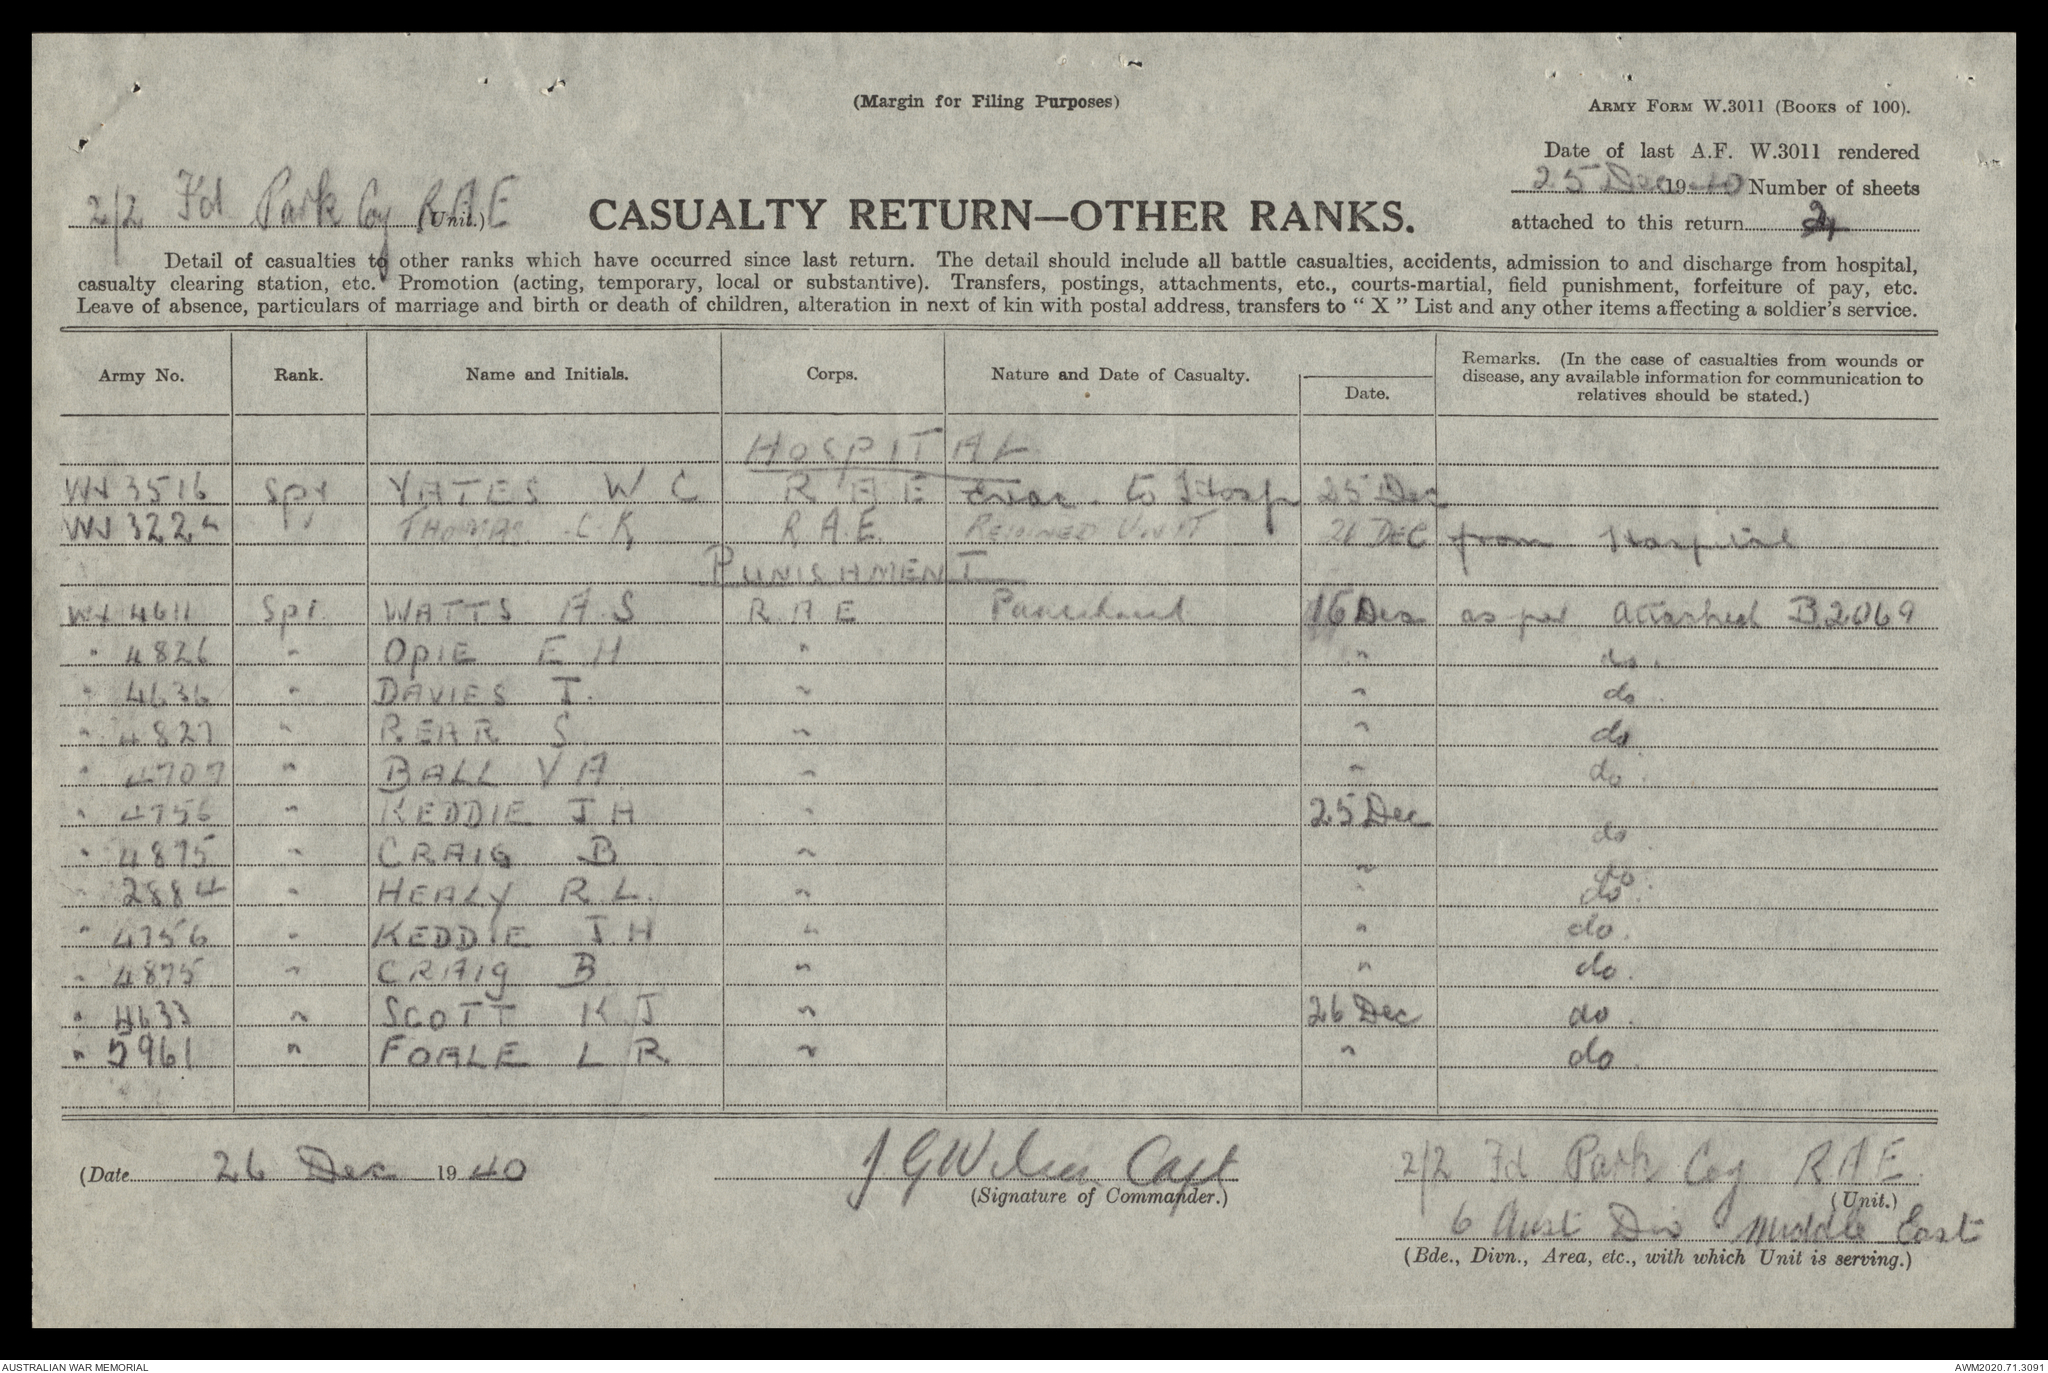 (Margin for Filing Purposes)
ARMY FORM W.3011 (BOOKS of 100).
Date of last A.F. W.3011 rendered
25 Dec 1940 Number of sheets
attached to this return
2/2 Fd Park Coy R A E (Unit.)
CASUALTY RETURN—OTHER RANKS.
Detail of casualties to other ranks which have occurred since last return. The detail should include all battle casualties, accidents, admission to and discharge from hospital,
casualty clearing station, etc. Promotion (acting, temporary, local or substantive). Transfers, postings, attachments, etc., courts-martial, field punishment, forfeiture of pay, etc.
Leave of absence, particulars of marriage and birth or death of children, alteration in next of kin with postal address, transfers to " X " List and any other items affecting a soldier's service.
Army No. Rank. Name and Initials. Corps. Nature and Date of Casualty. Date. Remarks. (In the case of casualties from wounds or disease, any available information for communication to relatives should be stated.)
HOSPITAL
WX 3516 Spr YATES W C R A E Evac. to Hosp 25 Dec
THOMAS C K R.A.E. REJOINED UNIT 21 DEC from Hospital
PUNISHMENT
WX 4611 Spr. WATTS A.S R.A E Punishment 16 Dec as per attached B2069
" 4826 " OPIE E H " " do.
" 4636 " DAVIES T. " " do.
" 4827 " REAR S " " do.
" 4707 " BALL V A " " do.
" 4756 " KEDDIE J H " 25 Dec do
" 4875 " CRAIG B " " do.
" 2884 " HEALY R.L. " " do.
" 4756 " KEDDIE J.H " " do.
" 4875 " CRAIG B " " do.
" 4633 " SCOTT K J " 26 Dec do.
" 5961 " FOALE L R. " " do.
(Date 26 Dec 1940
J G Wilson Capt
(Signature of Commander.)
2/2 Fd Park Coy R A E.
(Unit.)
6 Aust Div Middle East
(Bde., Divn., Area, etc., with which Unit is serving.)
AUSTRALIAN WAR MEMORIAL
AWM2020.71.3091